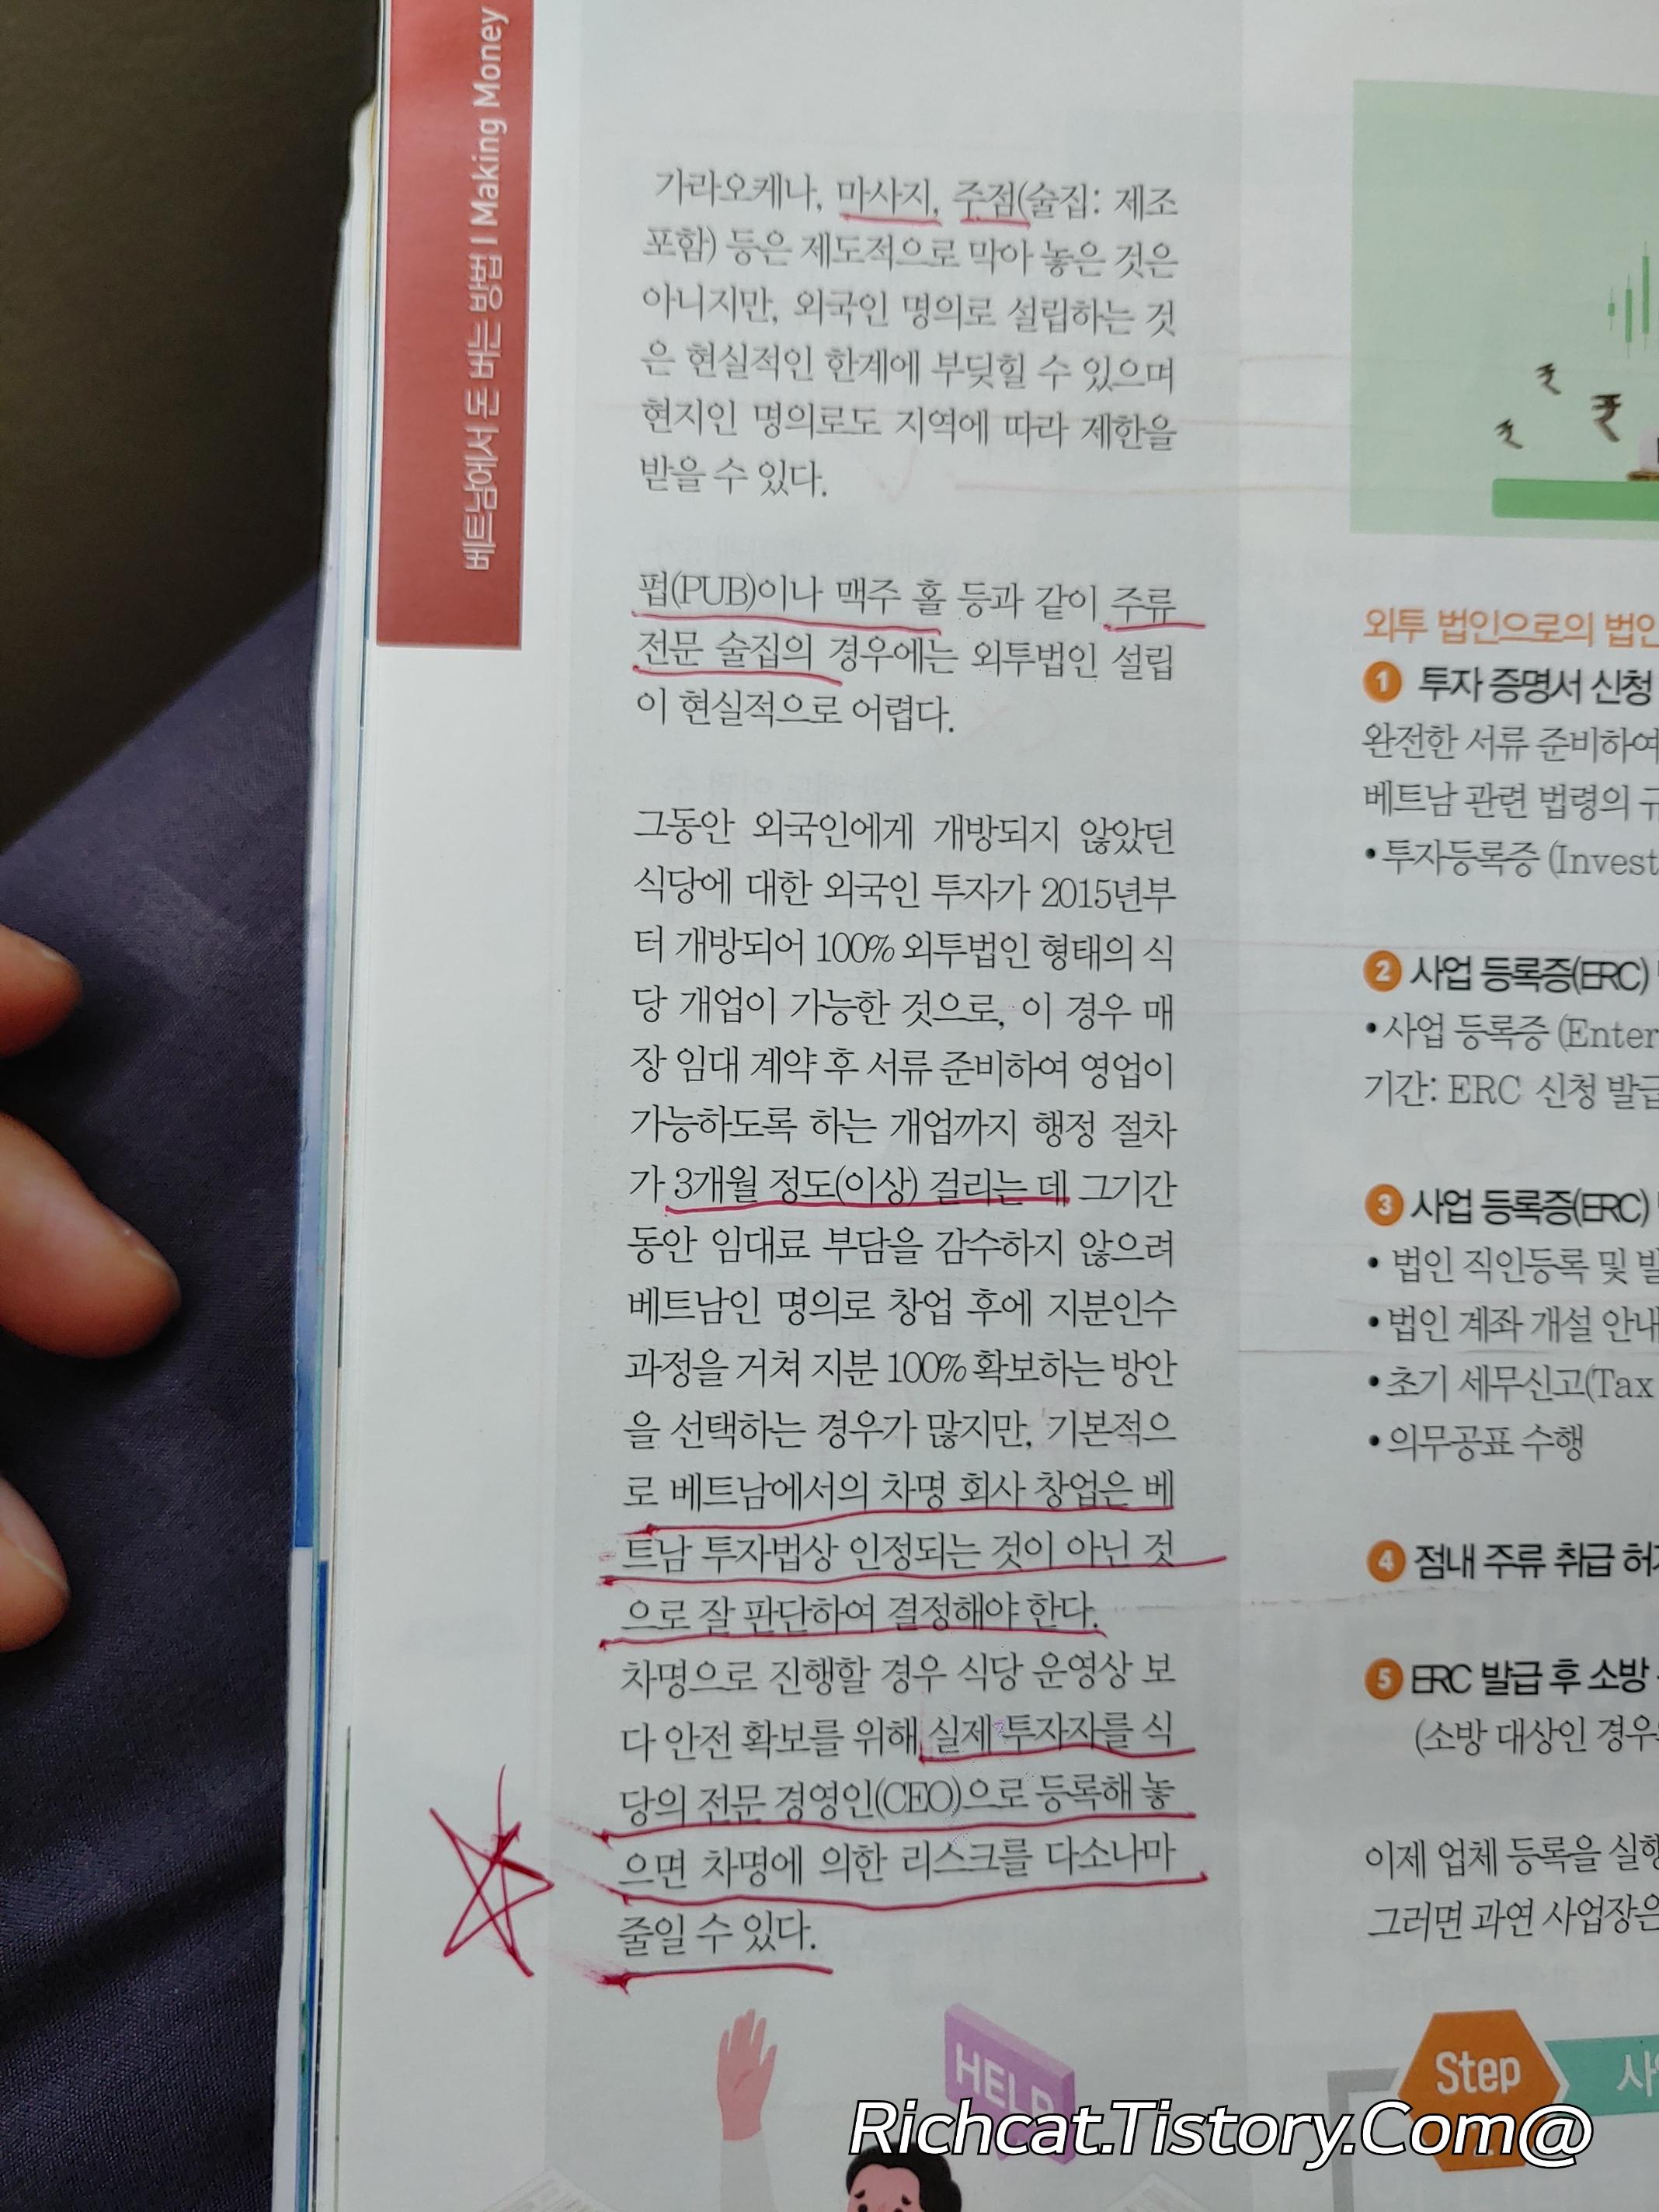 베트남에서 돈 버는 방법 | Making Money
가라오케나, 마사지, 주점(술집: 제조
포함) 등은 제도적으로 막아 놓은 것은
아니지만, 외국인 명의로 설립하는 것
은 현실적인 한계에 부딪힐 수 있으며
현지인 명의로도 지역에 따라 제한을
받을 수 있다.
펍(PUB)이나 맥주 홀 등과 같이 주류
전문 술집의 경우에는 외투법인 설립
이 현실적으로 어렵다.
그동안 외국인에게 개방되지 않았던
식당에 대한 외국인 투자가 2015년부
터 개방되어 100% 외투법인 형태의 식
당 개업이 가능한 것으로, 이 경우 매
장 임대 계약 후 서류 준비하여 영업이
가능하도록 하는 개업까지 행정 절차
가 3개월 정도(이상) 걸리는 데 그기간
동안 임대료 부담을 감수하지 않으려
베트남인 명의로 창업 후에 지분인수
과정을 거쳐 지분 100% 확보하는 방안
을 선택하는 경우가 많지만, 기본적으
로 베트남에서의 차명 회사 창업은 베
트남 투자법상 인정되는 것이 아닌 것
으로 잘 판단하여 결정해야 한다.
차명으로 진행할 경우 식당 운영상 보
다 안전 확보를 위해 실제 투자자를 식
당의 전문 경영인(CEO)으로 등록해 놓
으면 차명에 의한 리스크를 다소나마
줄일 수 있다.
HELP
외투 법인으로의 법인
1 투자 증명서 신청
완전한 서류 준비하여
베트남 관련 법령의
•투자등록증 (Invest
2 사업 등록증(ERC)
•사업 등록증 (Enter
기간: ERC 신청 발급
3 사업 등록증(ERC)
• 법인 직인등록 및
•법인 계좌 개설 안내
•초기 세무신고(Tax
•의무공표 수행
4 점내 주류 취급
5 ERC 발급 후 소방
(소방 대상인
이제 업체 등록을
그러면 과연 사업장은
Step
Richcat.Tistory.Com@